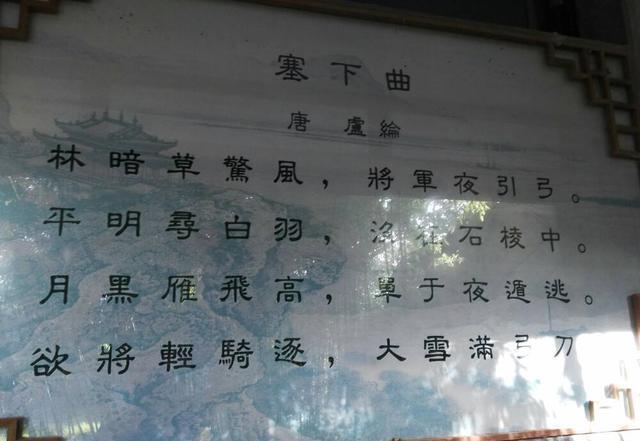 塞下曲
唐 盧綸
林暗草驚風，將軍夜引弓。
平明尋白羽，沒在石棱中。
月黑雁飛高，單于夜遁逃。
欲將輕騎逐，大雪滿弓刀